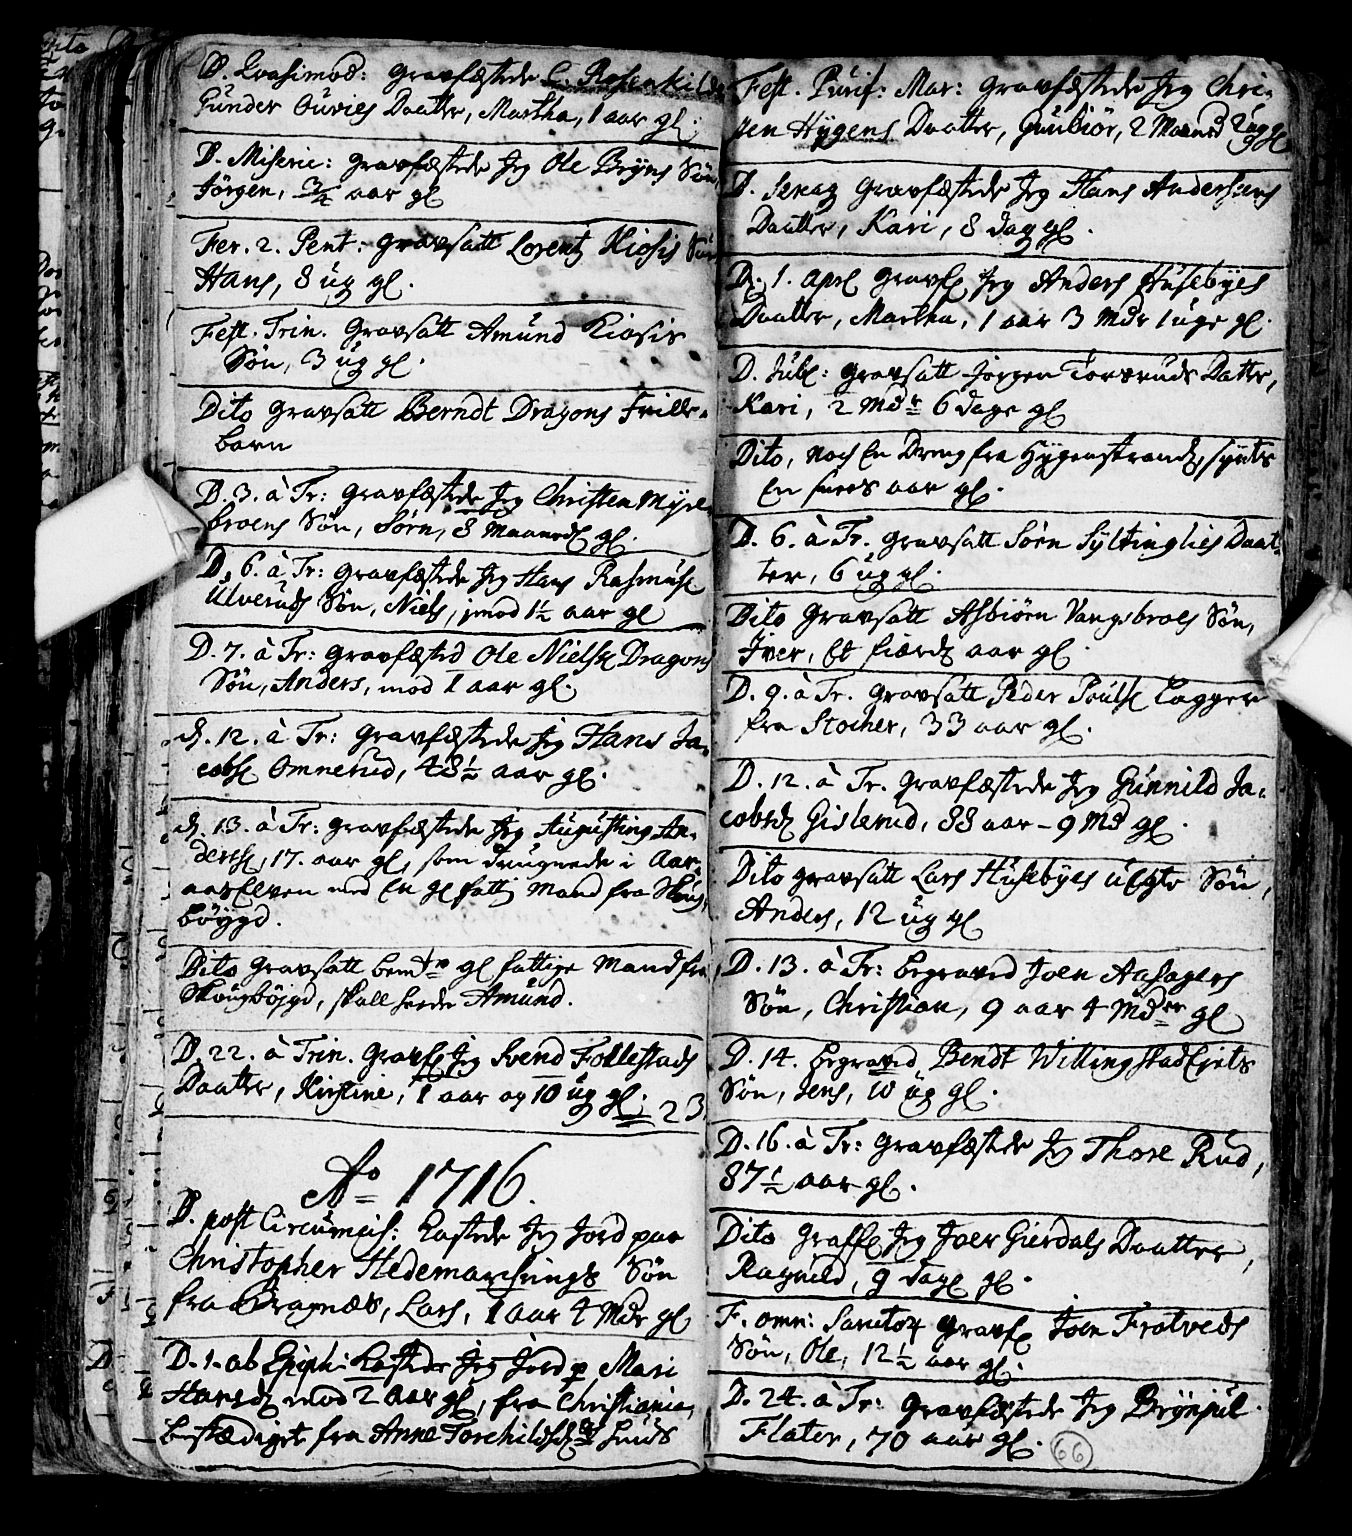 D. Qvasimod: Gravfæstede C. Rosenkilde
Gunder Ouries Daatter, Martha, 1 aar gl:
D. Miseric: Gravfæstede Jeg Ole Bryns Søn,
Jørgen, 3/4 aar gl
Fer. 2. Pent: Gravsatt Lorentz Kiosis Søn
Hans, 8 ug gl.
Fest. Trin. Gravsatt Amund Kiosis
Søn, 3 ug gl.
Dito Gravsatt Berndt Dragons Frille-
barn
D. 3. à Tr: Gravfæstede Jeg Christen Myre-
broens Søn, Sørn, 8 Maaneds gl.
D. 6. à Tr: Gravfæstede Jeg Hans Rasmus
Ulveruds Søn, Niels, imod 1½ aar gl
D. 7. à Tr: Gravfæsted Ole Niels Dragons
Søn, Anders, mod 1 aar gl.
D. 12. à Tr: Gravfæstede Jeg Hans Ja-
cobs Omnerud, 48½ aar gl.
D. 13. à Tr: Gravfæstede Jeg Augusting An-
ders, 17. aar gl, som drugnede i Aar
aaselven med en gl fattig Mand fra Skoug-
bøygd.
Dito Gravsatt bemte gl fattige Mand fra
Skougbøygd, skall hede Amund.
D. 22. à Trin. Gravf Jeg Svend Follestads
Daatter, Kirstine, 1 aar og 10 ug gl. 23.
Ao 1716.
D. post Circumcis: Kastede Jeg Jord paa
Christopher Hedemarchnings Søn
fra Bragnæs, Lars, 1 aar 4 Mdr gl
D. 1. ab Epiph: Kastede Jeg Jord p Mari
Hansd mod 2 aar gl, fra Christiania,
bestædiget fra Anne Torchilds Huus
Fest. Purif: Mar: Gravfæstede Jeg Chri-
sten Hygens Daatter, Gunbiør, 2 Maaned 2 ug gl
D. Sexag Gravfæstede Jeg Hans Andersens
Daatter, Kari, 8 dag gl.
D. 1. April Gravf Jeg Anders Husebyes
Daatter, Martha, 1 aar 3 Mdr 1 uge gl.
D. Jubl: Gravsatt Jørgen Torsruds Datter,
Kari, 2 Mdr 6 dage gl
Dito, noch en Dreng fra Hygenstrand, syntes
en fiers aar gl.
D. 6. à Tr. Gravsatt Sørn Syltinglies Daat-
ter, 6 ug gl.
Dito Gravsatt Asbiørn Vangsbraes Søn,
Iver, Et fiærd aar gl.
D. 9. à Tr. Gravsatt Peder Pouls Tagger
fra Stocher, 33 aar gl.
D. 12. à Tr. Gravfæstede Jeg Gunnild Ja-
cobsd Gislerud, 88 aar - 9 Md gl.
Dito Gravsatt Lars Husebyes uægte Søn,
Anders, 12 ug gl
D. 13. à Tr: begraved Joen Aasagers
Søn, Christian, 9 aar 4 Mdr gl
D. 14. begraved Bendt Willingstadeiets
Søn, Jens, 10 ug gl.
D. 16. à Tr: Gravfæstede Jeg Thore Rud,
87½ aar gl.
Dito Graff Jeg Joer Gierdals Daatter,
Ragnild, 9 Dage gl.
F. omn: Sanctor Gravf Joen Fratveds
Søn, Ole, 12½ aar gl.
D. 24. à Tr: Gravfæstede Jeg Brynjul
Flater, 70 aar gl.
66